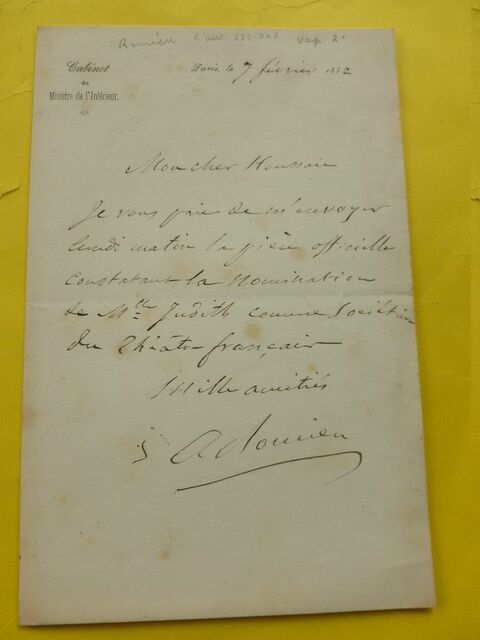 Cabinet
du
Ministre de l'Intérieur.
Paris, le 7 février 1852
Mon cher Houssaie
Je vous prie de m'envoyer
lundi matin la pièce officielle
constatant la nomination
de Mlle Judith comme Sociétaire
du Théâtre français
Mille amitiés